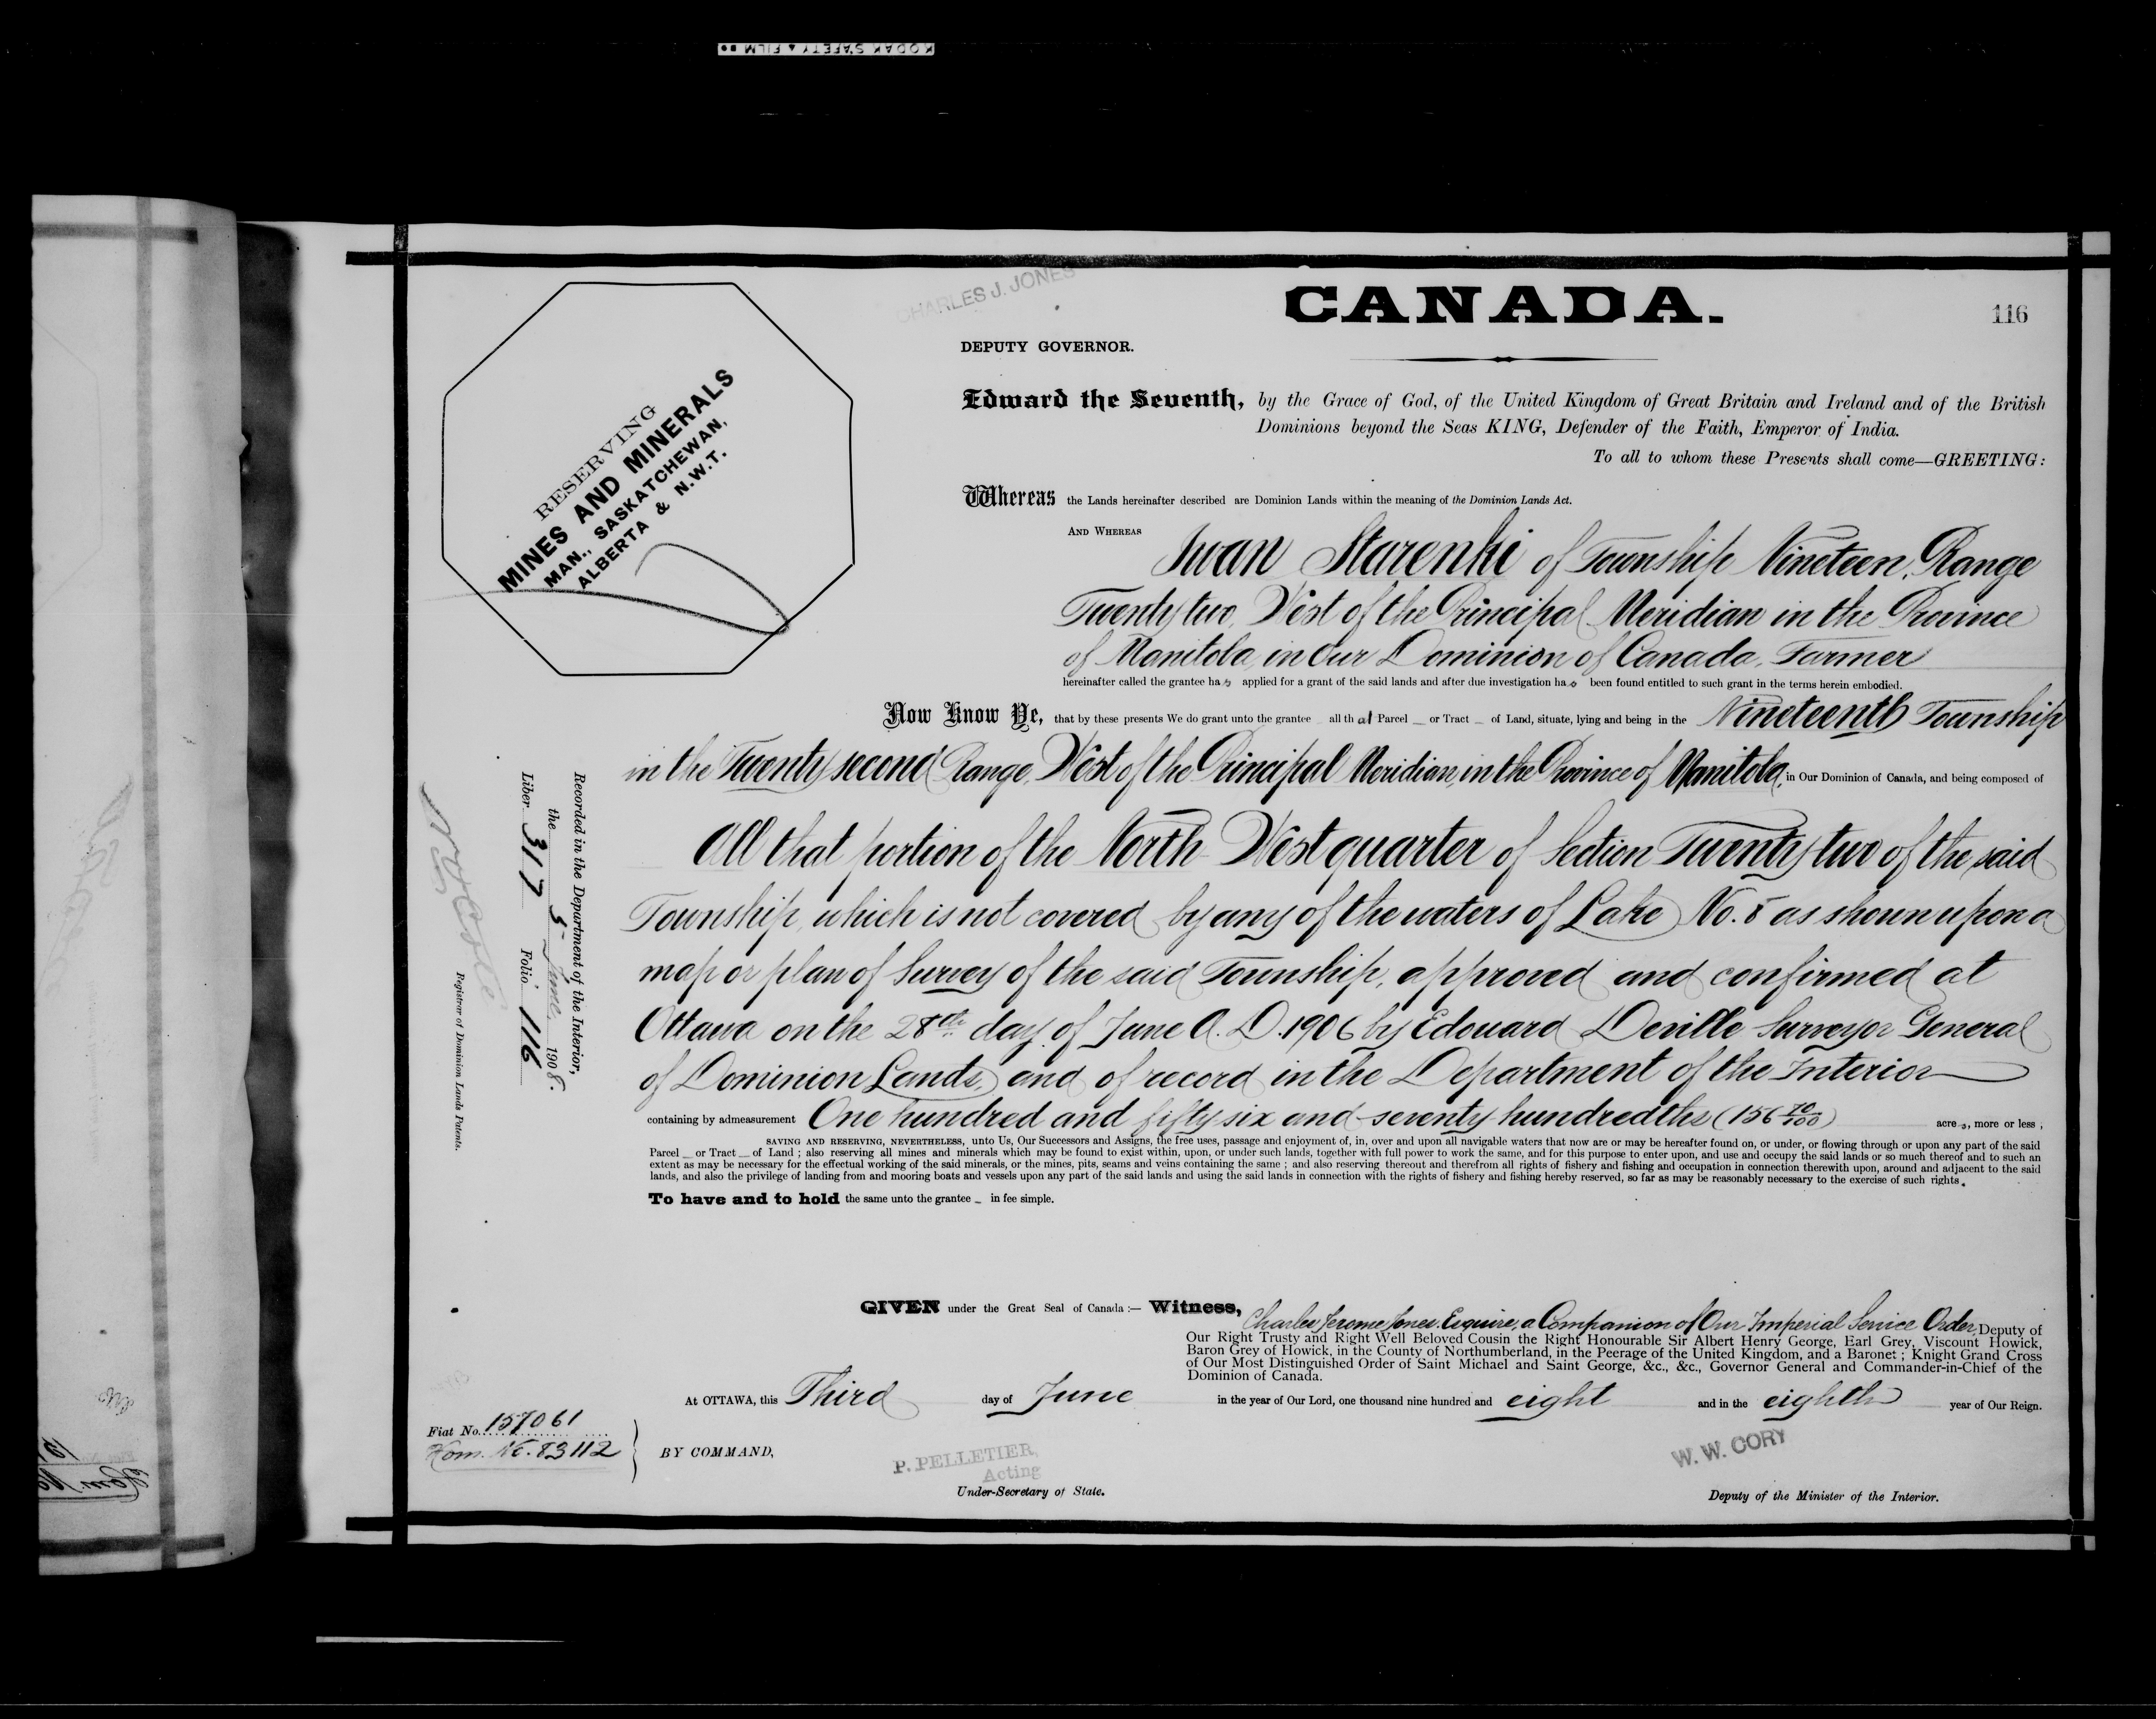 KODAK SAFETY FILM
CHARLES J. JONES
CANADA.
116
DEPUTY GOVERNOR.
Edward the Seventh, by the Grace of God, of the United Kingdom of Great Britain and Ireland and of the British
Dominions beyond the Seas KING, Defender of the Faith, Emperor of India.
To all to whom these Presents shall come—GREETING:
RESERVING
MINES AND MINERALS
MAN., SASKATCHEWAN,
ALBERTA & N.W.T.
Whereas the Lands hereinafter described are Dominion Lands within the meaning of the Dominion Lands Act.
AND WHEREAS
Iwan Starenki of Township Nineteen, Range
Twenty two, West of the Principal Meridian in the Province
of Manitoba, in Our Dominion of Canada, Farmer
hereinafter called the grantee has applied for a grant of the said lands and after due investigation has been found entitled to such grant in the terms herein embodied.
Now Know Ye, that by these presents We do grant unto the grantee all that Parcel or Tract of Land, situate, lying and being in the Nineteenth Township
in the Twenty second Range, West of the Principal Meridian, in the Province of Manitoba, in Our Dominion of Canada, and being composed of
All that portion of the North West quarter of Section Twenty two of the said
Township, which is not covered by any of the waters of Lake No. 8 as shown upon a
map or plan of Survey of the said Township, approved and confirmed at
Ottawa on the 28th day of June A. D. 1906 by Edouard Deville Surveyor General
of Dominion Lands, and of record in the Department of the Interior
containing by admeasurement One hundred and fifty six and seventy hundredths (156 70/100) acres, more or less,
SAVING AND RESERVING, NEVERTHELESS, unto Us, Our Successors and Assigns, the free uses, passage and enjoyment of, in, over and upon all navigable waters that now are or may be hereafter found on, or under, or flowing through or upon any part of the said
Parcel or Tract of Land ; also reserving all mines and minerals which may be found to exist within, upon, or under such lands, together with full power to work the same, and for this purpose to enter upon, and use and occupy the said lands or so much thereof and to such an
extent as may be necessary for the effectual working of the said minerals, or the mines, pits, seams and veins containing the same ; and also reserving thereout and therefrom all rights of fishery and fishing and occupation in connection therewith upon, around and adjacent to the said
lands, and also the privilege of landing from and mooring boats and vessels upon any part of the said lands and using the said lands in connection with the rights of fishery and fishing hereby reserved, so far as may be reasonably necessary to the exercise of such rights.
To have and to hold the same unto the grantee in fee simple.
Recorded in the Department of the Interior,
the 5 June 1908.
Liber 317 Folio 116
Registrar of Dominion Lands Patents.
GIVEN under the Great Seal of Canada :— Witness, Charles Jerome Jones Esquire, a Companion of Our Imperial Service Order, Deputy of
Our Right Trusty and Right Well Beloved Cousin the Right Honourable Sir Albert Henry George, Earl Grey, Viscount Howick,
Baron Grey of Howick, in the County of Northumberland, in the Peerage of the United Kingdom, and a Baronet ; Knight Grand Cross
of Our Most Distinguished Order of Saint Michael and Saint George, &c., &c., Governor General and Commander-in-Chief of the
Dominion of Canada.
At OTTAWA, this Third day of June in the year of Our Lord, one thousand nine hundred and eight and in the eighth year of Our Reign.
Fiat No. 157061
Hom. No. 83112
BY COMMAND,
P. PELLETIER,
Acting
Under-Secretary of State.
W. W. CORY
Deputy of the Minister of the Interior.